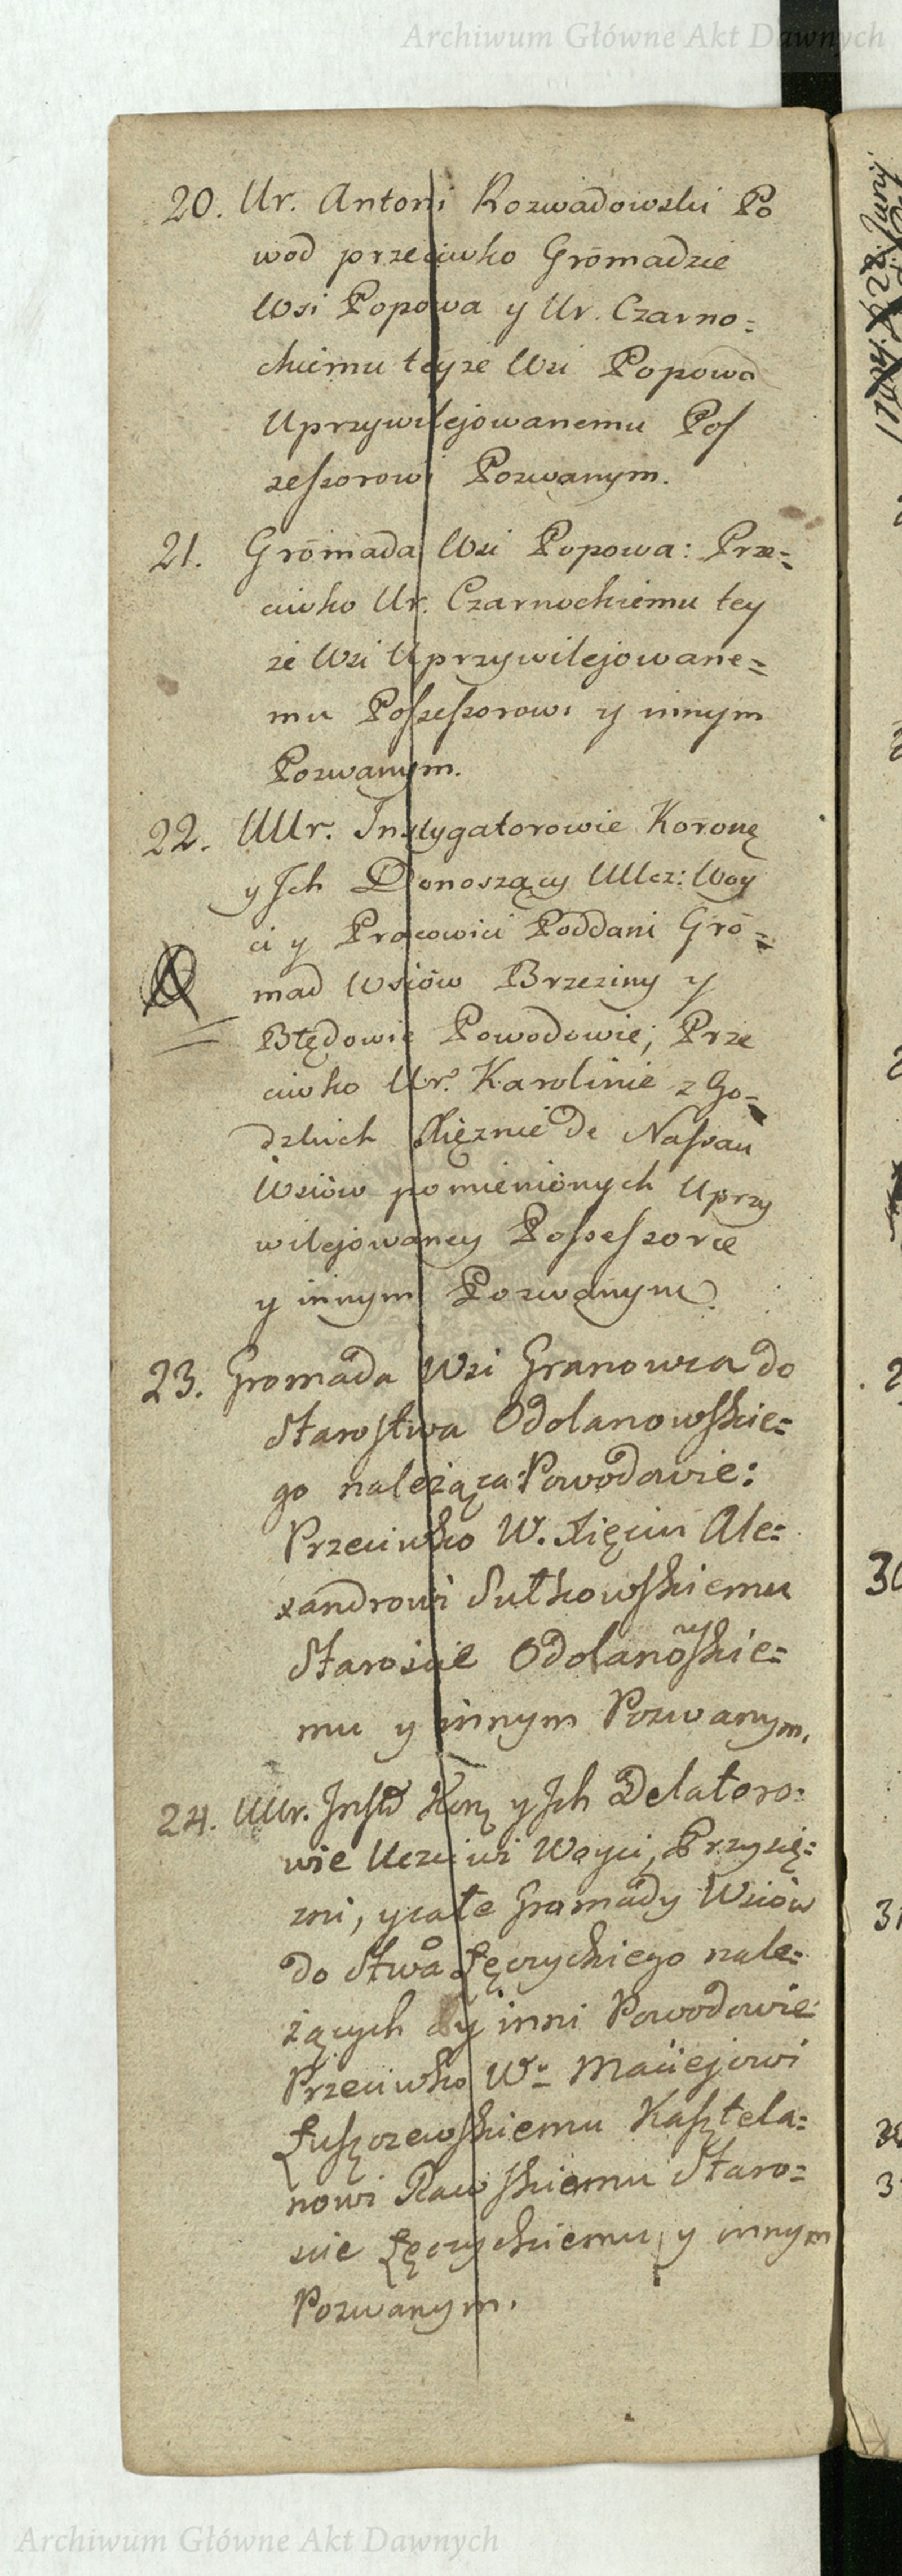 Archiwum Główne Akt Dawnych
20. Ur. Antoni Rozwadowski Po
wod przeciwko Gromadzie
Wsi Popowa y Ur. Czarno=
ckiemu teyże Wsi Popowa
Uprzywilejowanemu Pos
sessorowi Pozwanym.
21. Gromada Wsi Popowa: Prze=
ciwko Ur. Czarnockiemu tey
że Wsi Uprzywilejowane=
mu Possessorowi y innym
Pozwanym.
22. UUr. Instygatorowie Koronę
y Ich Donoszący UUcz: Woy
ci y Pracowici Poddani Gro=
mad Wsiów Brzeziny y
Błędowie Powodowie; Prze
ciwko Ur. Karolinie z Go=
dzkich Xiężnie de Nassau
Wsiów pomienionych Uprzy
wilejowaney Possessorce
y innym Pozwanym.
23. Gromada Wsi Granowca do
Starostwa Odolanowskie=
go należąca: Powodowie:
Przeciwko W. Xięciu Ale=
xandrowi Sułkowskiemu
Starościе Odolanowskie=
mu y innym Pozwanym.
24. UUr. Inst Kor y Ich Delatoro=
wie Uczciwi Woyci, Przysię=
żni, y całe Gromady Wsiów
do Stwa Łęczyckiego nale=
żących y inni Powodowie
Przeciwko W. Maciejowi
Łuszczewskiemu Kasztela=
nowi Rawskiemu Staro=
ście Łęczyckiemu y innym
Pozwanym.
Archiwum Główne Akt Dawnych